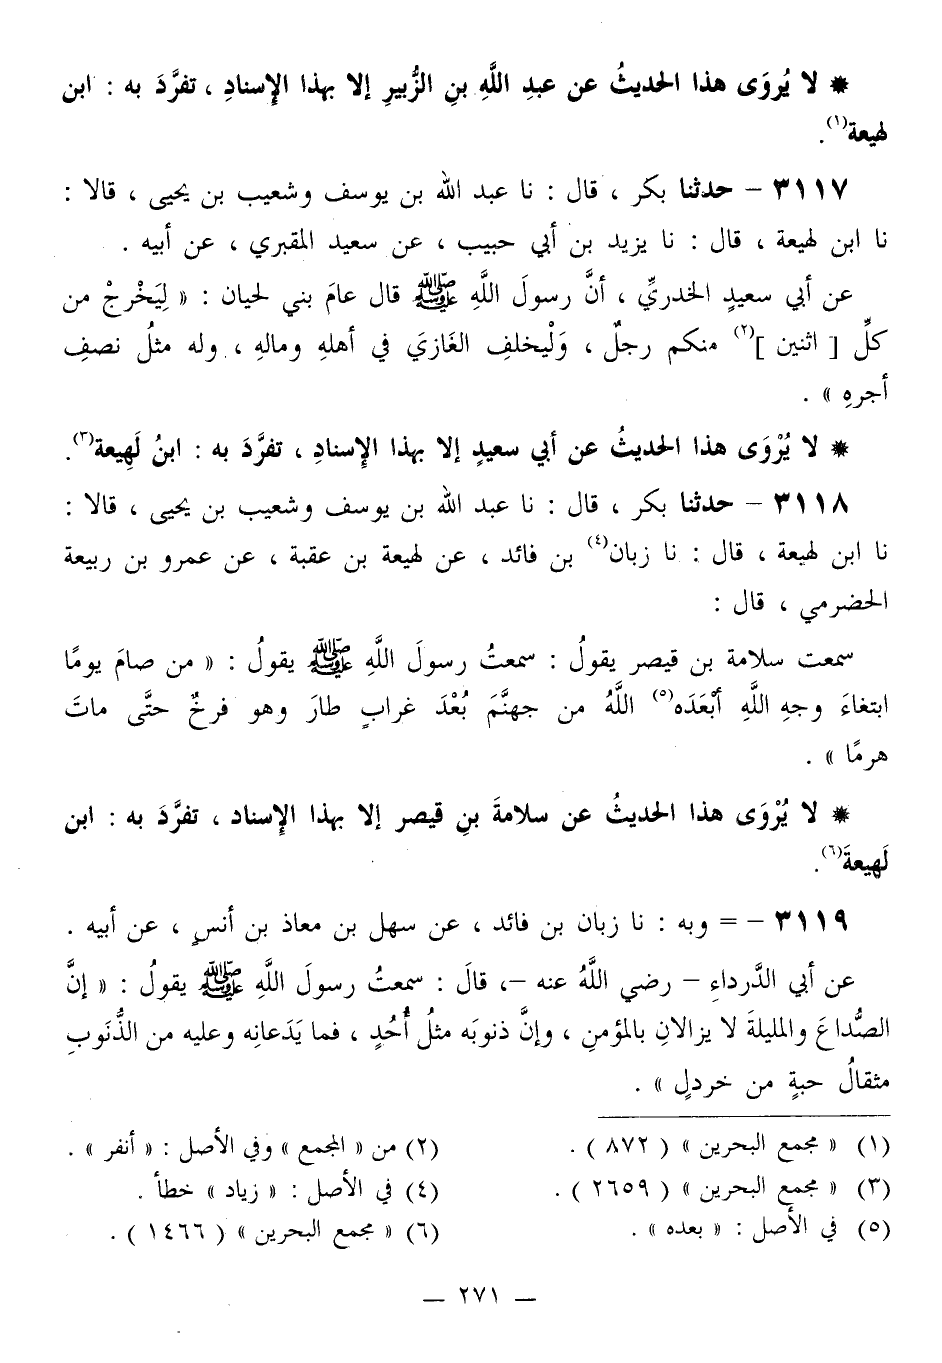 * لا يُروَى هذا الحديثُ عن عبدِ اللَّهِ بنِ الزُّبيرِ إلا بهذا الإِسنادِ ، تفرَّدَ به : ابن
لهيعة(١).
٣١١٧ – حدثنا بكر ، قال : نا عبد الله بن يوسف وشعيب بن يحيى ، قالا :
نا ابن لهيعة ، قال : نا يزيد بن أبي حبيب ، عن سعيد المقبري ، عن أبيه .
عن أبي سعيدٍ الخدريِّ ، أنَّ رسولَ اللَّهِ ﷺ قال عامَ بني لحيان : « لِيَخْرجْ من
كلِّ [ اثنين ](٢) منكم رجلٌ ، وَلْيخلفِ الغَازيَ في أهلهِ ومالهِ ، وله مثلُ نصفِ
أجرهِ » .
* لا يُرْوَى هذا الحديثُ عن أبي سعيدٍ إلا بهذا الإِسنادِ ، تفرَّدَ به : ابنُ لَهِيعة(٣).
٣١١٨ – حدثنا بكر ، قال : نا عبد الله بن يوسف وشعيب بن يحيى ، قالا :
نا ابن لهيعة ، قال : نا زبان(٤) بن فائد ، عن لهيعة بن عقبة ، عن عمرو بن ربيعة
الحضرمي ، قال :
سمعت سلامة بن قيصر يقولُ : سمعتُ رسولَ اللَّهِ ﷺ يقولُ : « من صامَ يومًا
ابتغاءَ وجهِ اللَّهِ أَبْعَدَه(٥) اللَّهُ من جهنَّمَ بُعْدَ غرابٍ طارَ وهو فرخٌ حتَّى ماتَ
هرمًا » .
* لا يُرْوَى هذا الحديثُ عن سلامةَ بنِ قيصر إلا بهذا الإِسناد ، تفرَّدَ به : ابن
لَهيعةَ(٦).
٣١١٩ – = وبه : نا زبان بن فائد ، عن سهل بن معاذ بن أنسٍ ، عن أبيه .
عن أبي الدَّرداءِ – رضي اللَّهُ عنه –، قالَ : سمعتُ رسولَ اللَّهِ ﷺ يقولُ : « إنَّ
الصُّداعَ والمليلةَ لا يزالانِ بالمؤمنِ ، وإنَّ ذنوبَه مثلُ أُحُدٍ ، فما يَدَعانِه وعليه من الذُّنَوبِ
مثقالُ حبةٍ من خردلٍ » .
(١) « مجمع البحرين » ( ٨٧٢ ) . (٢) من « المجمع » وفي الأصل : « أنفر » .
(٣) « مجمع البحرين » ( ٢٦٥٩ ) . (٤) في الأصل : « زياد » خطأ .
(٥) في الأصل : « بعده » . (٦) « مجمع البحرين » ( ١٤٦٦ ) .
– ٢٧١ –